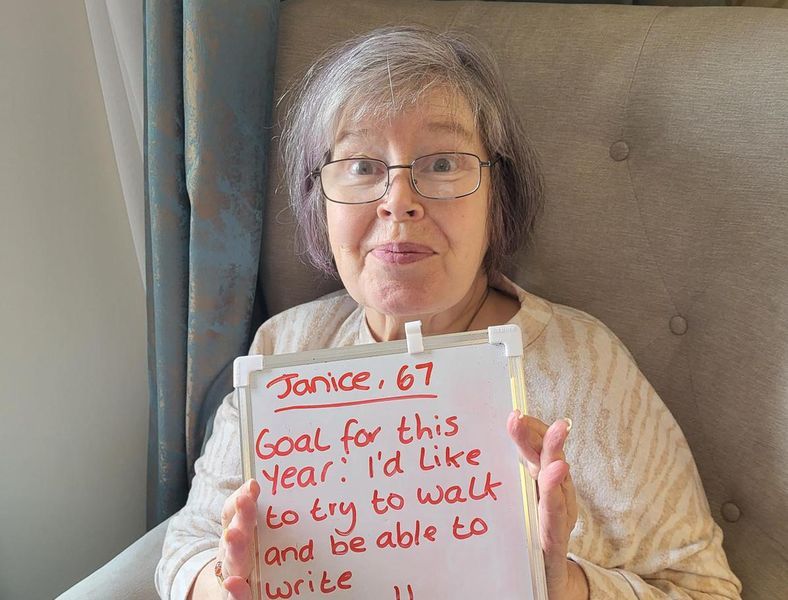 Janice, 67
Goal for this
year: I'd like
to try to walk
and be able to
write